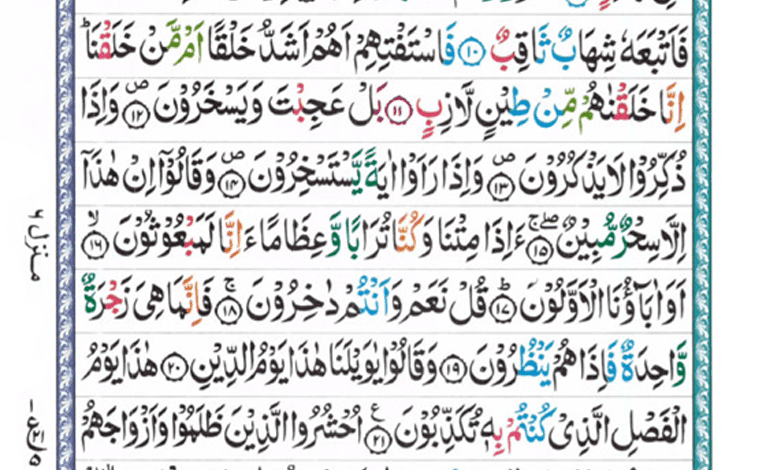 فَاَتْبَعَهٗ شِهَابٌ ثَاقِبٌ ﴿۱۰﴾ فَاسْتَفْتِهِمْ اَهُمْ اَشَدُّ خَلْقًا اَمْ مَّنْ خَلَقْنَا ؕ
اِنَّا خَلَقْنٰهُمْ مِّنْ طِيْنٍ لَّازِبٍ ﴿۱۱﴾ بَلْ عَجِبْتَ وَ يَسْخَرُوْنَ ﴿۱۲﴾ ص وَاِذَا
ذُكِّرُوْا لَا يَذْكُرُوْنَ ﴿۱۳﴾ ص وَاِذَا رَاَوْا اٰيَةً يَّسْتَسْخِرُوْنَ ﴿۱۴﴾ ص وَقَالُوْٓا اِنْ هٰذَآ
اِلَّا سِحْرٌ مُّبِيْنٌ ﴿۱۵﴾ ءَاِذَا مِتْنَا وَكُنَّا تُرَابًا وَّعِظَامًا ءَاِنَّا لَمَبْعُوْثُوْنَ ﴿۱۶﴾ لا
اَوَ اٰبَآؤُنَا الْاَوَّلُوْنَ ﴿۱۷﴾ ط قُلْ نَعَمْ وَاَنْتُمْ دٰخِرُوْنَ ﴿۱۸﴾ ج فَاِنَّمَا هِىَ زَجْرَةٌ
وَّاحِدَةٌ فَاِذَا هُمْ يَنْظُرُوْنَ ﴿۱۹﴾ وَقَالُوْا يٰوَيْلَنَا هٰذَا يَوْمُ الدِّيْنِ ﴿۲۰﴾ هٰذَا يَوْمُ
الْفَصْلِ الَّذِىْ كُنْتُمْ بِهٖ تُكَذِّبُوْنَ ﴿۲۱﴾ ع اُحْشُرُوا الَّذِيْنَ ظَلَمُوْا وَاَزْوَاجَهُمْ
منزل ۶